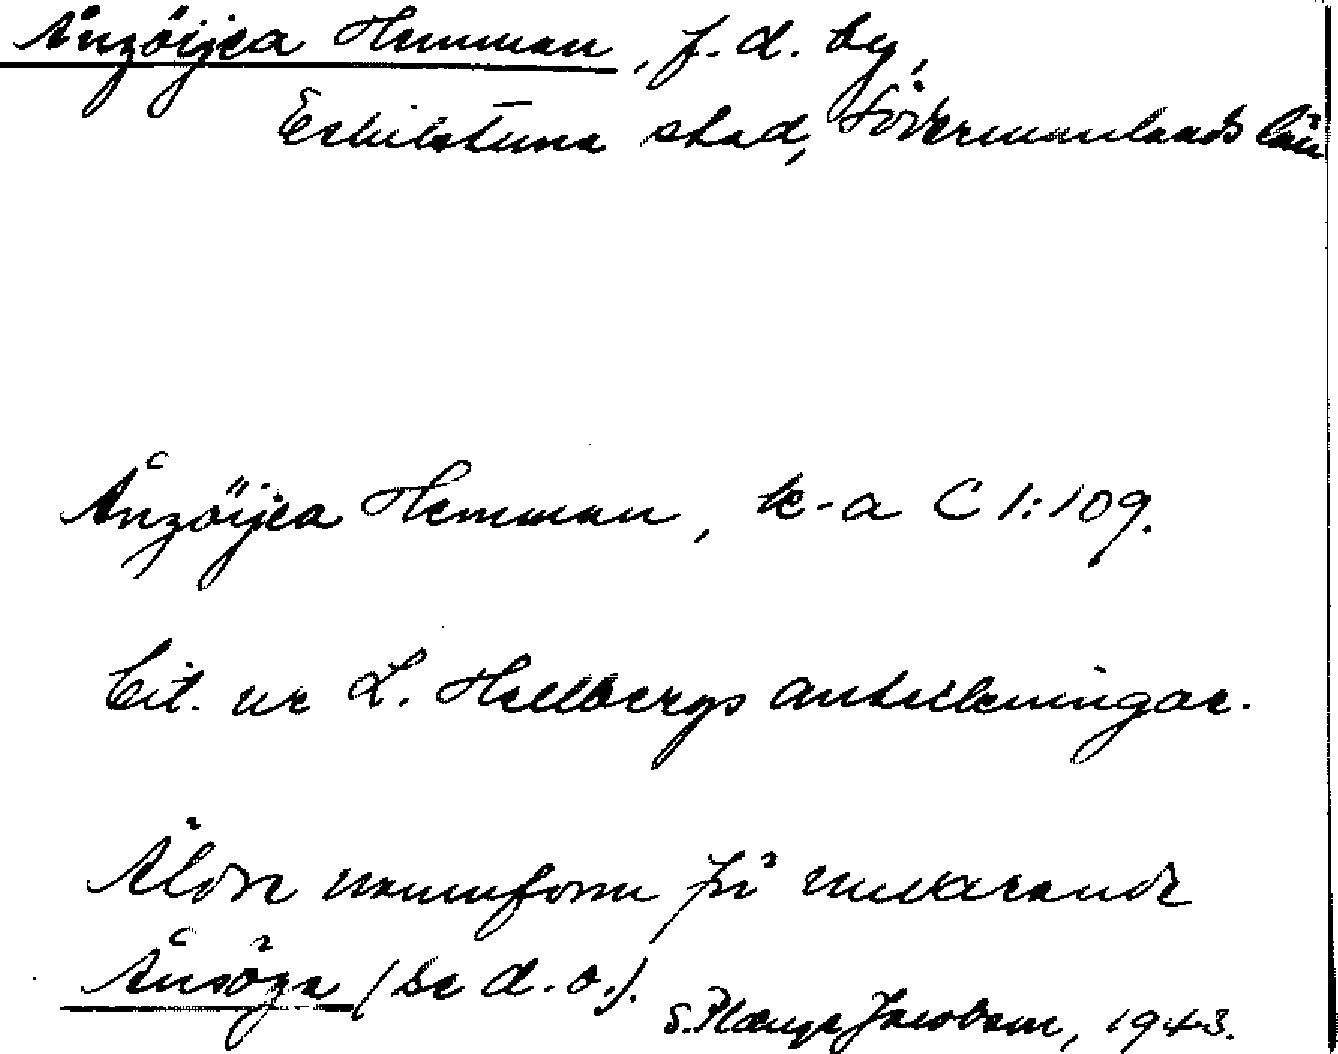 Ånzöijea Hemman, f. d. by,
Eskilstuna stad, Södermanlands län
Ånzöijea Hemman, k-a C 1:109.
Cit. ur L. Hellbergs anteckningar.
Äldre namnform för nuvarande
Ånsöga (se d. o.).
S. Jacobson, 1943.